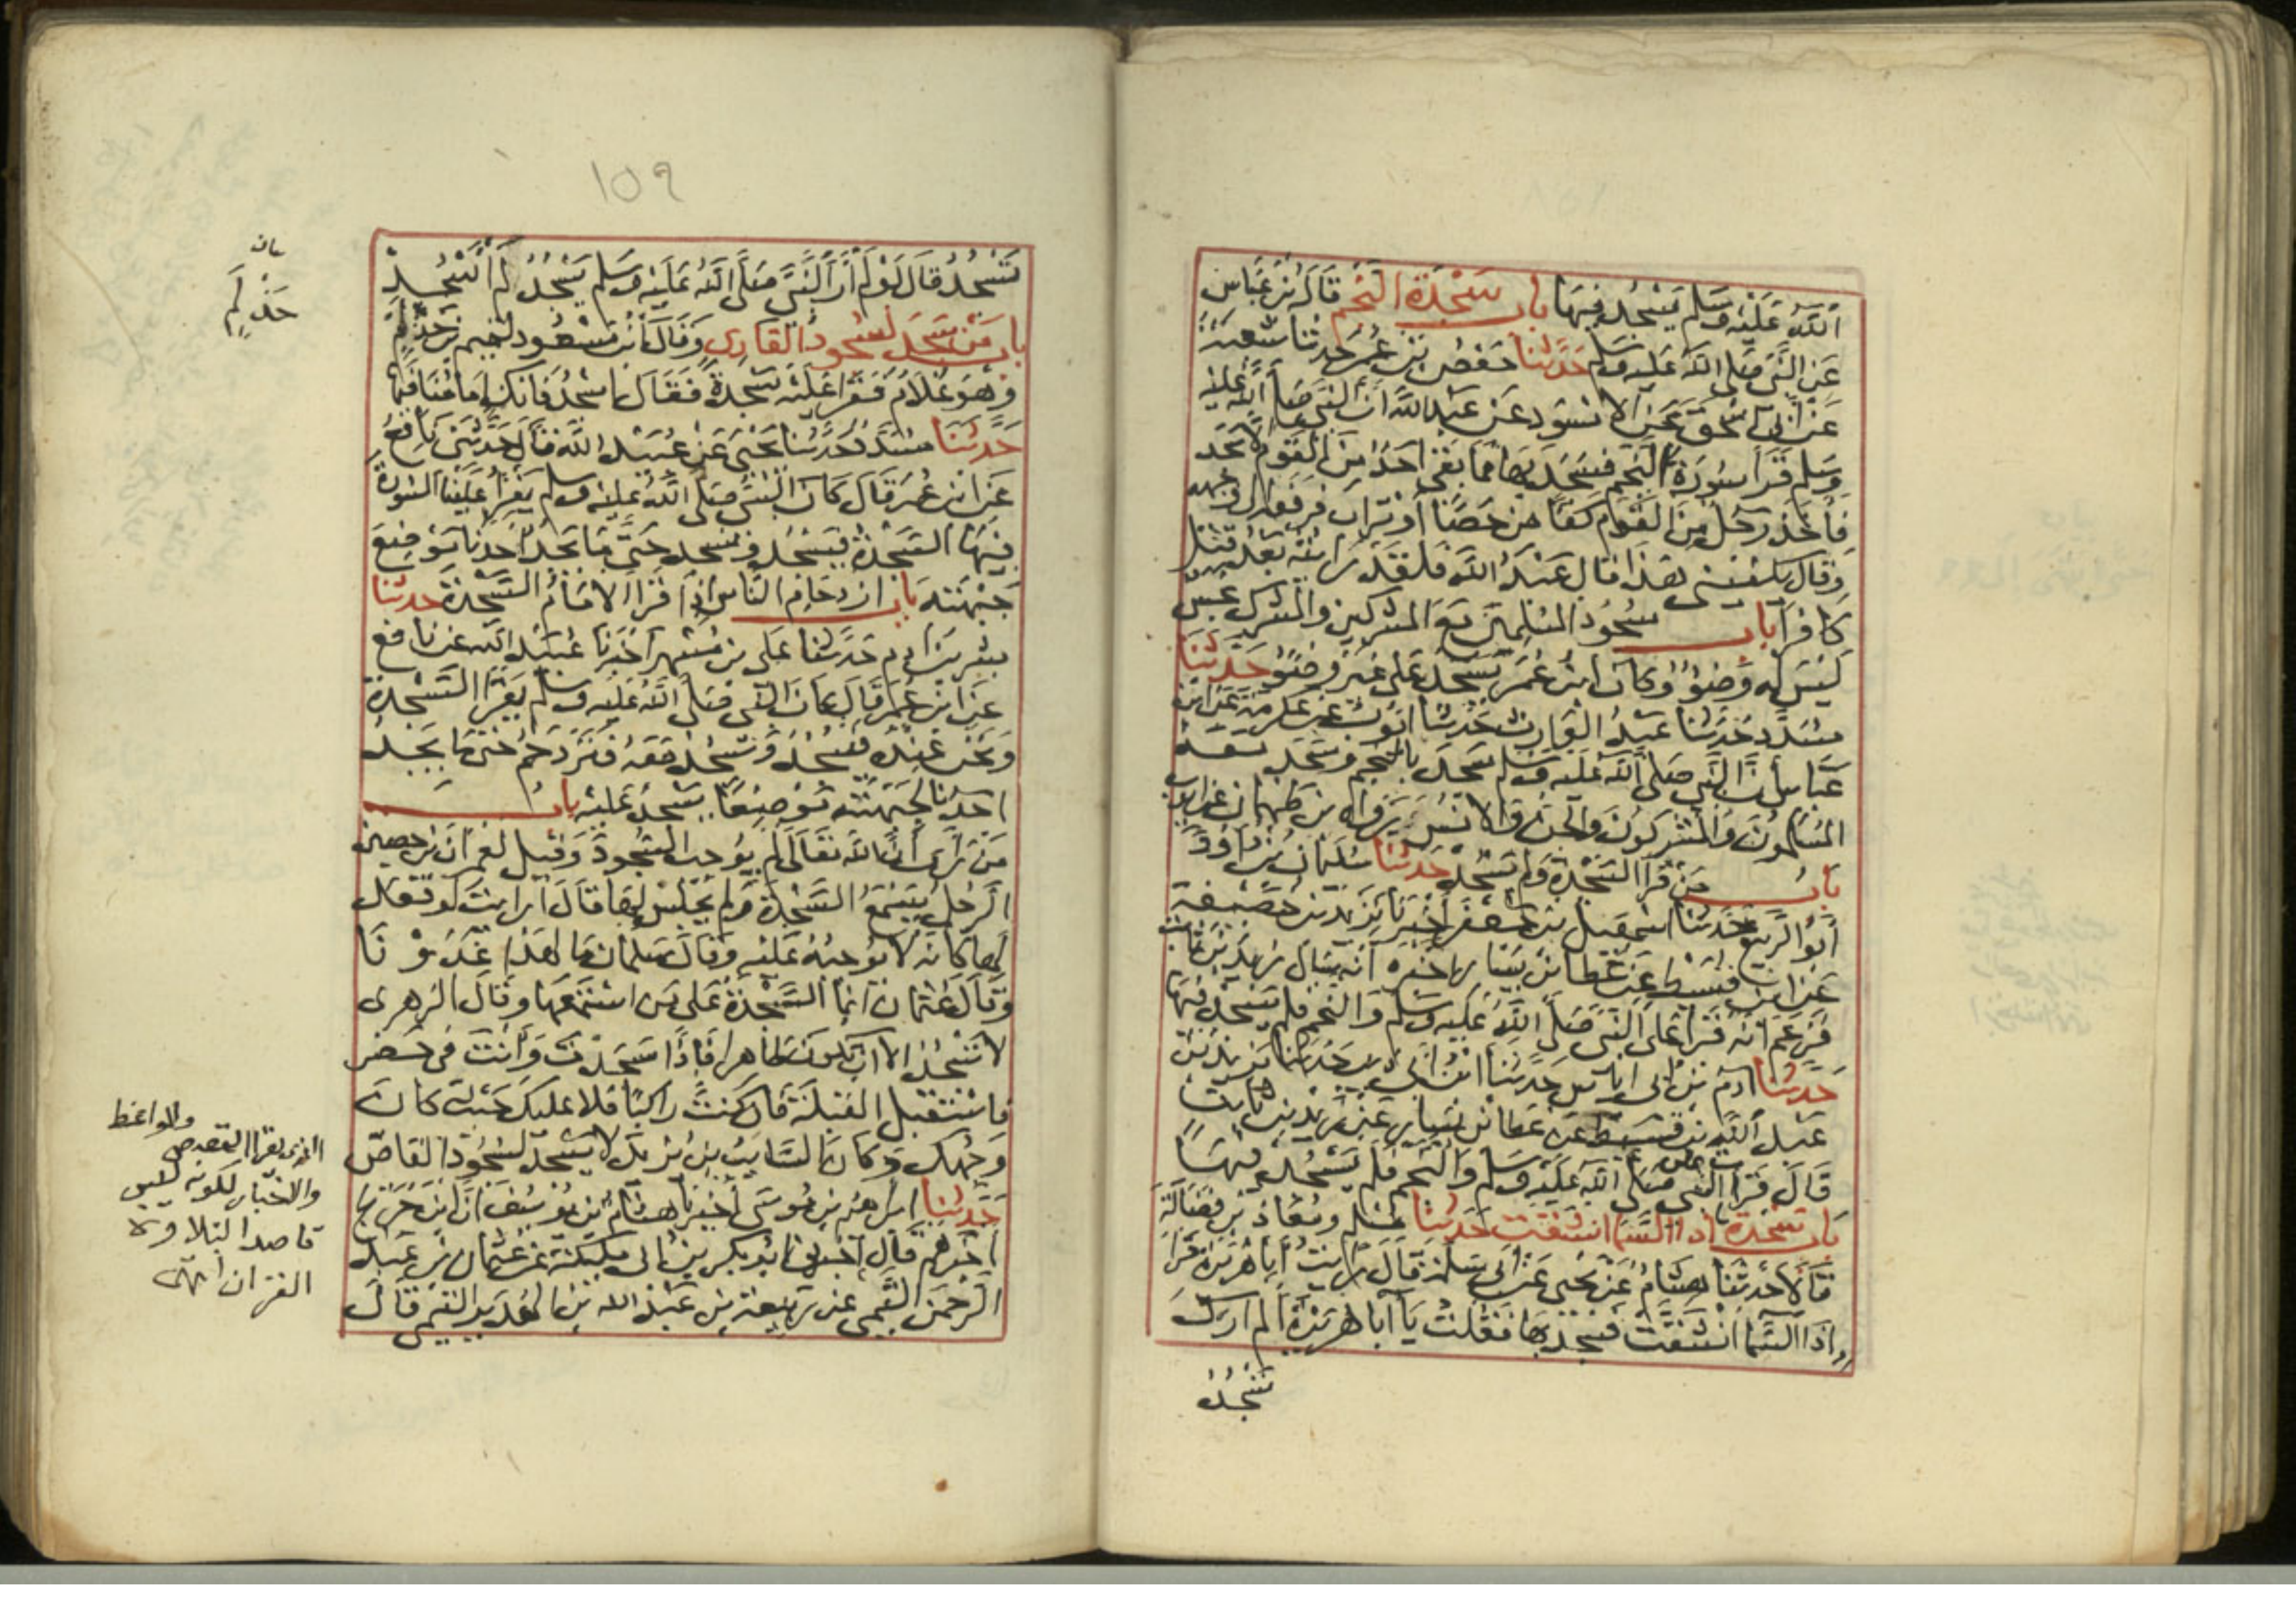 الله عليه وسلم يسجد فيها باب سجدة النجم قاله ابن عباس
عن النبي صلى الله عليه وسلم حدثنا حفص بن عمر حدثنا شعبة
عن أبي إسحق عن الاسود عن عبد الله أن النبي صلى الله عليه
وسلم قرأ سورة النجم فسجد بها فما بقي احد من القوم إلا سجد
فأخذ رجل من القوم كفا من حصا أو تراب فرفعه إلى وجهه
وقال يكفيني هذا قال عبد الله فلقد رايته بعد قتل
كافرا باب سجود المسلمين مع المشركين والمشرك نجس
ليس له وضوء وكان ابن عمر يسجد على غير وضوء حدثنا
مسدد حدثنا عبد الوارث حدثنا ايوب عن عكرمة عن ابن
عباس أن النبي صلى الله عليه وسلم سجد بالنجم وسجد معه
المسلمون والمشركون والجن والانس رواه ابن طهمان عن ايوب
باب من قرا السجدة ولم يسجد حدثنا سليمان بن داوود
أبو الربيع حدثنا اسمعيل بن جعفر أخبرنا يزيد بن خصيفة
عن ابن قسيط عن عطا بن يسار اخبره أنه سال زيد بن ثابت
فزعم انه قرا على النبي صلى الله عليه وسلم والنجم فلم يسجد فيها
حدثنا ادم بن ابي اياس حدثنا ابن ابي ذيب حدثنا يزيد بن
عبد الله بن قسيط عن عطا بن يسار عن زيد بن ثابت
قال قرأت على النبي صلى الله عليه وسلم والنجم فلم يسجد فيها
باب سجدة اذا السما انشقت حدثنا مسلم ومعاذ بن فضالة
قالا حدثنا هشام عن يحيى عن أبي سلمة قال رايت أبا هريرة قرا
اذا السما انشقت فسجد بها فقلت يا أبا هريرة ألم ارك
تسجد
١٥٩
تسجد قال لو لم أر النبي صلى الله عليه وسلم يسجد لم اسجد
باب من سجد لسجود القاري وقال ابن مسعود لتميم بن حذلم
وهو غلام فقرا عليه سجدة فقال اسجد فانك إمامنا فيها
حدثنا مسدد حدثنا يحيى عن عبيد الله قال حدثني نافع
عن ابن عمر قال كان النبي صلى الله عليه وسلم يقرأ علينا السورة
فيها السجدة فيسجد ونسجد حتى ما يجد أحدنا موضع
جبهته باب ازدحام الناس إذا قرا الامام السجدة حدثنا
بشر بن ادم حدثنا علي بن مسهر أخبرنا عبيد الله عن نافع
عن ابن عمر قال كان النبي صلى الله عليه وسلم يقرا السجدة
ونحن عنده فيسجد ونسجد معه فنزدحم حتى ما يجد
احدنا لجبهته موضعا يسجد عليه باب
من رأى أن الله تعالى لم يوجب السجود وقيل لعمران بن حصين
الرجل يسمع السجدة ولم يجلس لها قال أرايت لو قعد
لها كانه لا يوجبه عليه وقال سلمان ما لهذا غدونا
وقال عثمان انما السجدة على من استمعها وقال الزهري
لا تسجد إلا ان تكون طاهرا فإذا سجدت وأنت في حضر
فاستقبل القبلة فان كنت راكبا فلا عليك حيث كان
وجهك وكان السايب بن يزيد لا يسجد لسجود القاص
حدثنا ابراهيم بن موسى أخبرنا هشام بن يوسف أن ابن جريج
اخبرهم قال أخبرني ابو بكر بن ابي مليكة عن عثمان بن عبد
الرحمن التيمي عن ربيعة بن عبد الله بن الهدير التيمي قال
بيان
حذلم
والواعظ
الذي يقرا القصص
والاخبار لكونه ليس
قاصدا لتلاوة
القران انتهى